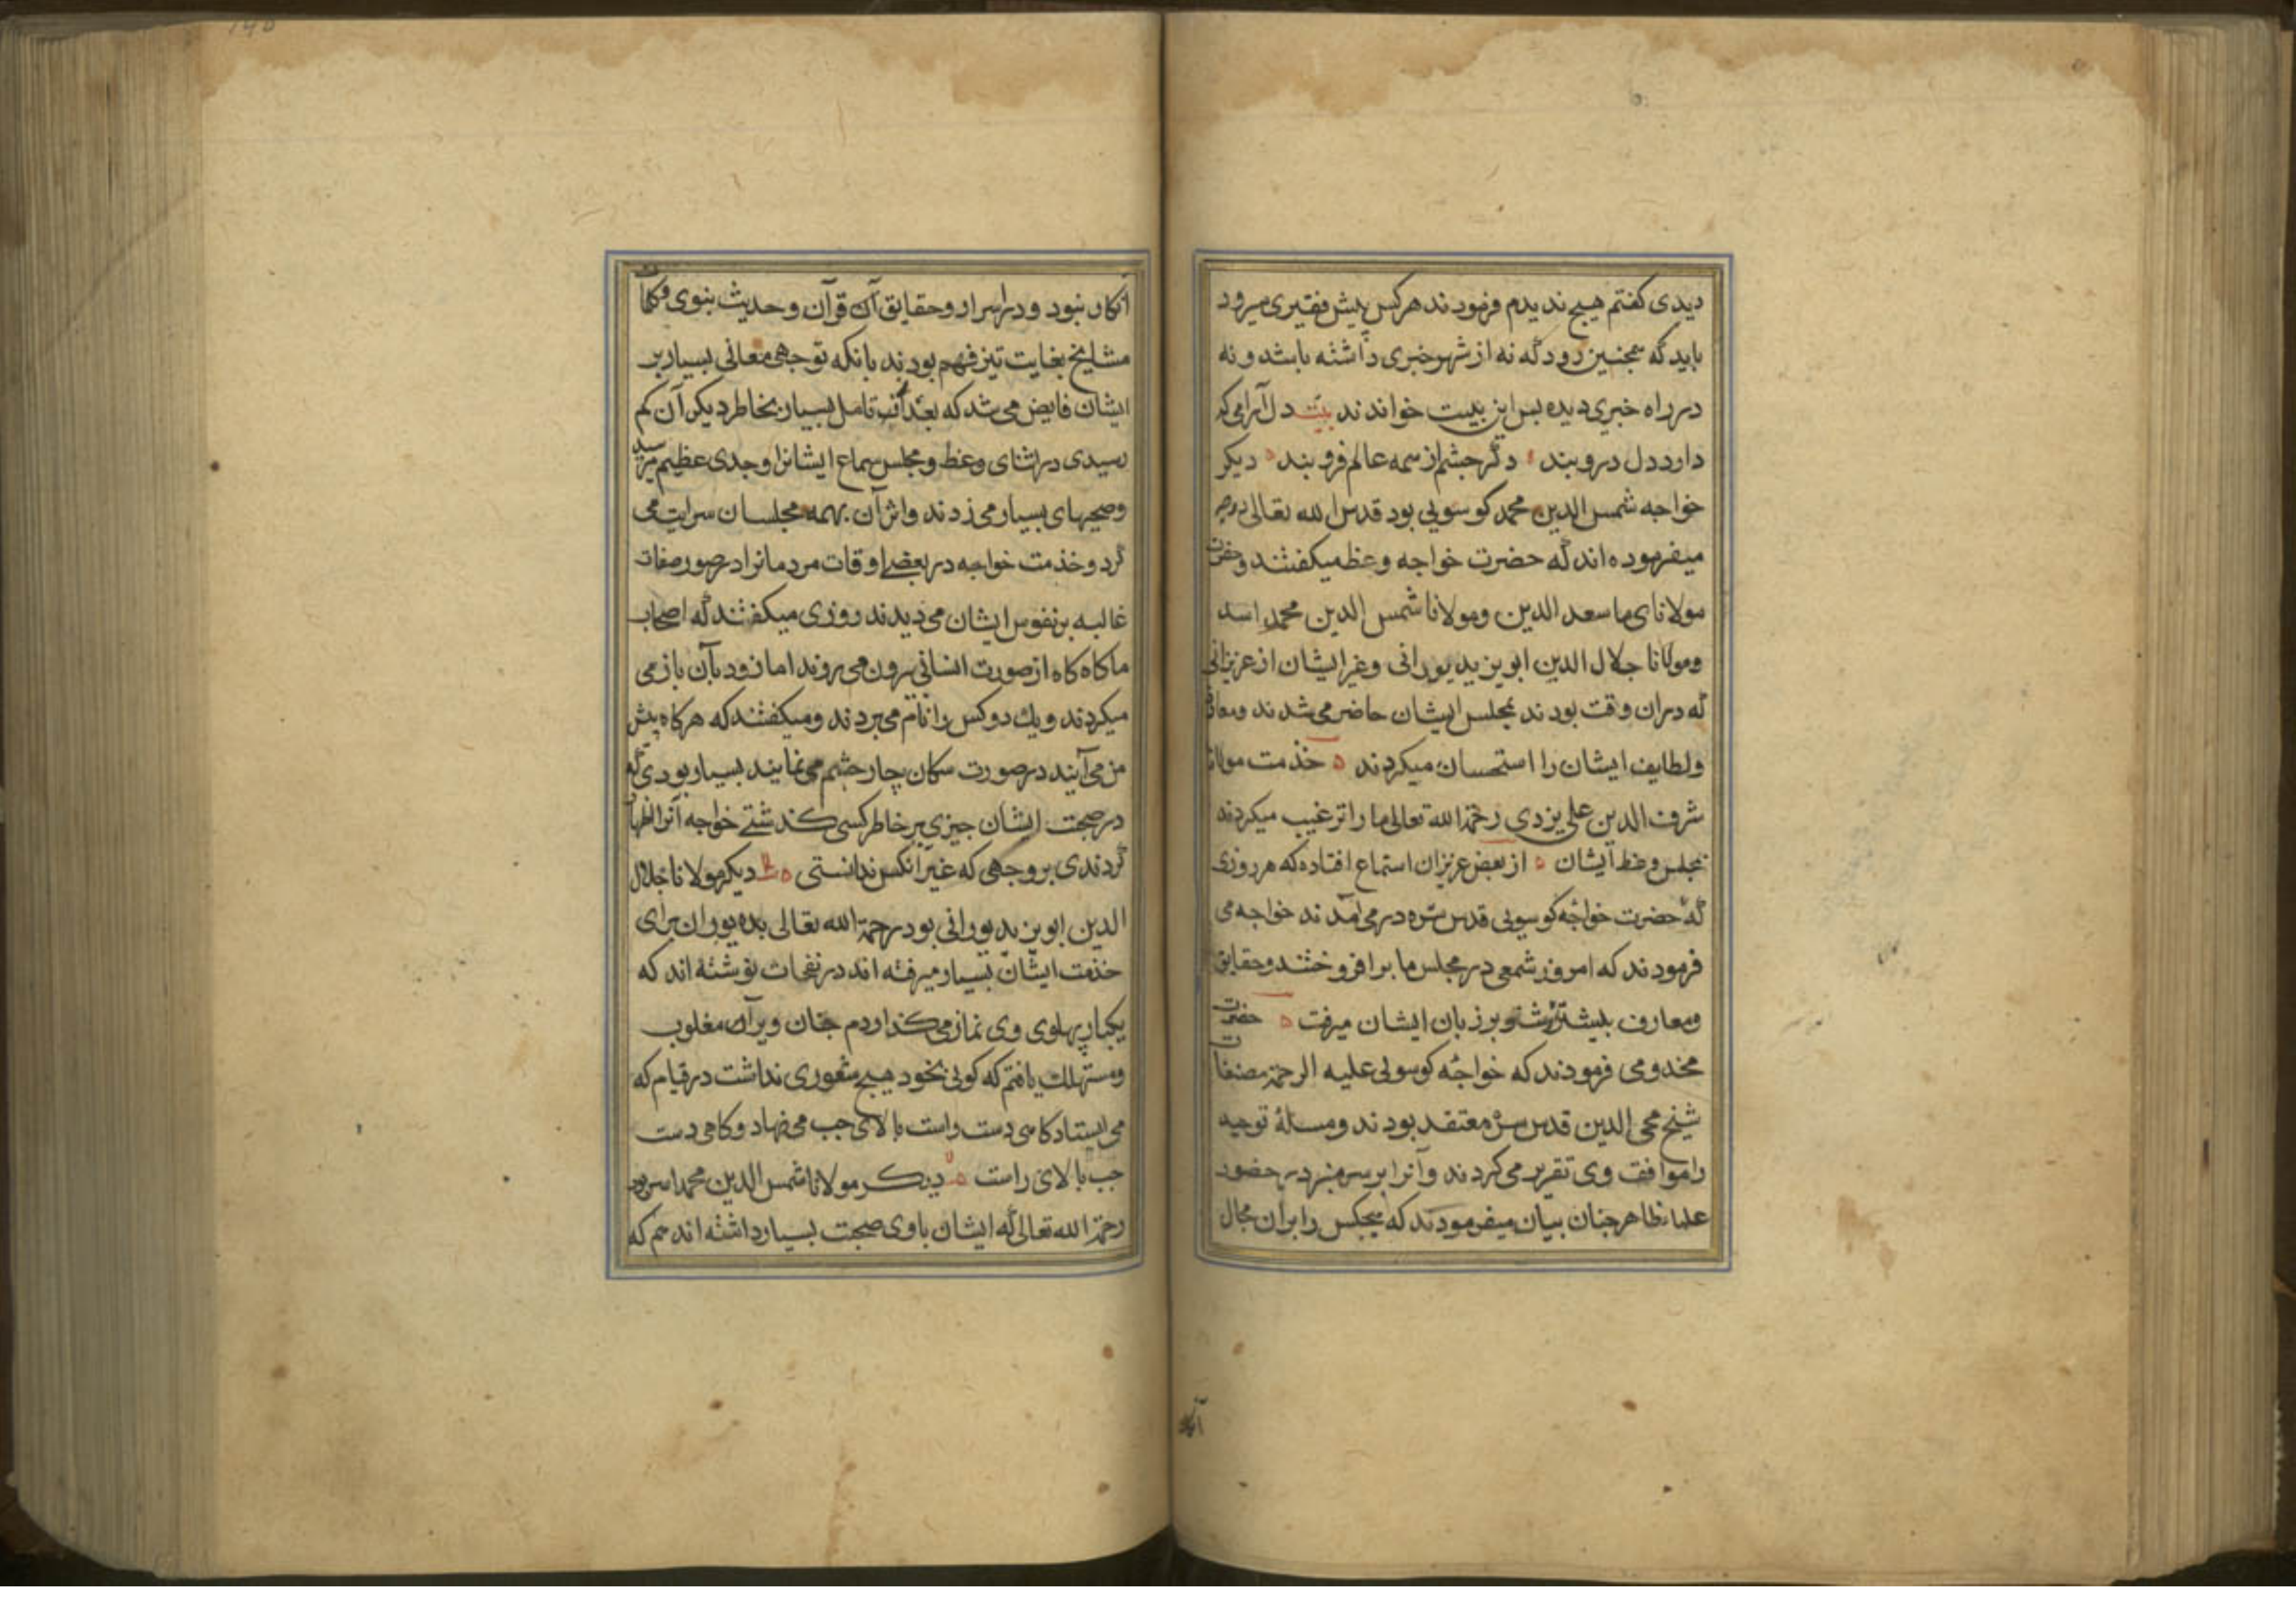 دیدی کفتم هیچ ندیدم فرمودند هرکس پیش فقیری میرود
باید که همجنین رود که نه از شهر خبری داشته باشد و نه
در راه خبری دیده بس این بیت خواندند بیت دل آرامی که
داری دل درو بند دکر جشم از همه عالم فرو بند دیکر
خواجه شمس الدین محمد کوسویی بود قدس الله تعالی روحه
میفرموده اند که حضرت خواجه وعظ میکفتند و حضرت
مولانای ما سعد الدین و مولانا شمس الدین محمد اسد
و مولانا جلال الدین ابویزید پورانی و غیر ایشان از عزیزانی
که دران وقت بودند بمجلس ایشان حاضر می شدند و معارف
و لطایف ایشان را استحسان میکردند خذمت مولانا
شرف الدین علی یزدی رحمة الله تعالی ما را ترغیب میکردند
بمجلس وعظ ایشان از بعض عزیزان استماع افتاده که هر روزی
که حضرت خواجه کوسویی قدس سره در می آمدند خواجه می
فرمودند که امروز شمعی در مجلس ما بر افروختند و حقایق
و معارف بیشتر بر زبان ایشان میرفت حضرت
مخدومی فرمودند که خواجه کوسویی علیه الرحمة مصنفات
شیخ محی الدین قدس سره معتقد بودند و مسألۀ توحید
را موافقت وی تقریر می کردند و آنرا بر سر منبر در حضور
علماء ظاهر جنان بیان میفرمودند که هیجکس را بران مجال
آنکار
انکار نبود و در اسرار و حقایق آن قرآن و حدیث نبوی و کلمات
مشایخ بغایت تیز فهم بودند بانکه توجهی معانی بسیار بر
ایشان فایض می شد که بعد از تامل بسیار بخاطر دیکر آن کم
رسیدی در اثنای وعظ و مجلس سماع ایشانرا وجدی عظیم میرسید
و صیحهای بسیار می زدند و اثر آن بهمه مجلسان سرایت می
کرد و خذمت خواجه در بعضی اوقات مردمانرا در صور صفات
غالبه بر نفوس ایشان می دیدند روزی میکفتند که اصحاب
ما کاه کاه از صورت انسانی بیرون می روند اما زود بآن باز می
میکردند و یک دو کس را نام می بردند و میکفتند که هرکاه پیش
من می آیند در صورت سکان چار جشم می نمایند بسیار بودی که
در صحبت ایشان جیزی بر خاطر کسی کذشتی خواجه آنرا اظهار
کردندی بر وجهی که غیر آنکس ندانستی دیکر مولانا جلال
الدین ابویزید پورانی بود رحمة الله تعالی بده پوران برای
خذمت ایشان بسیار میرفته اند در نفحات نوشته اند که
یکبار پهلوی وی نماز می کذاردم جنان ویرا مغلوب
و مستهلک یافتم که کویی بخود هیج شعوری نداشت در قیام که
می ایستاد کاهی دست راست بالای جب می نهاد و کاهی دست
جب بالای راست دیکر مولانا شمس الدین محمد اسد بود
رحمة الله تعالی که ایشان با وی صحبت بسیار داشته اند هم که